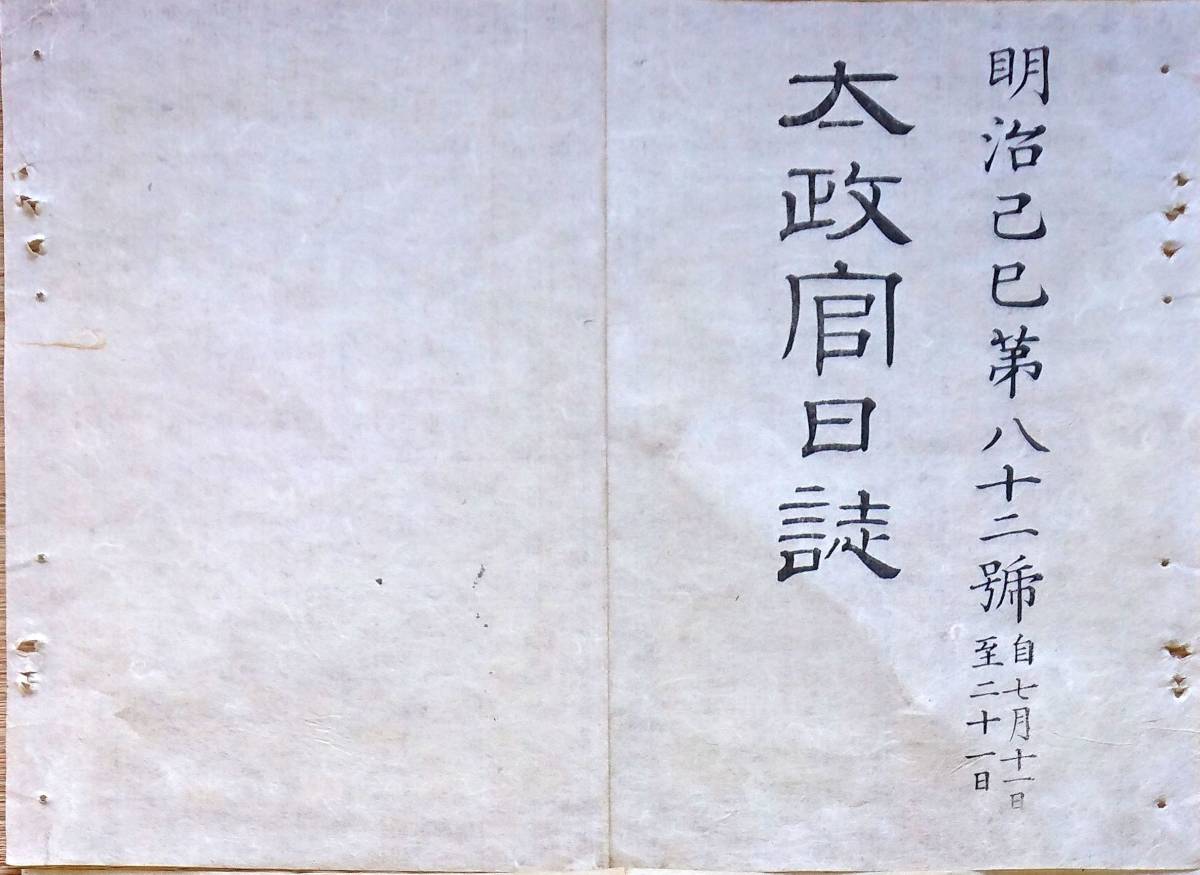 明治己巳第八十二號
自七月十一日
至二十一日
太政官日誌